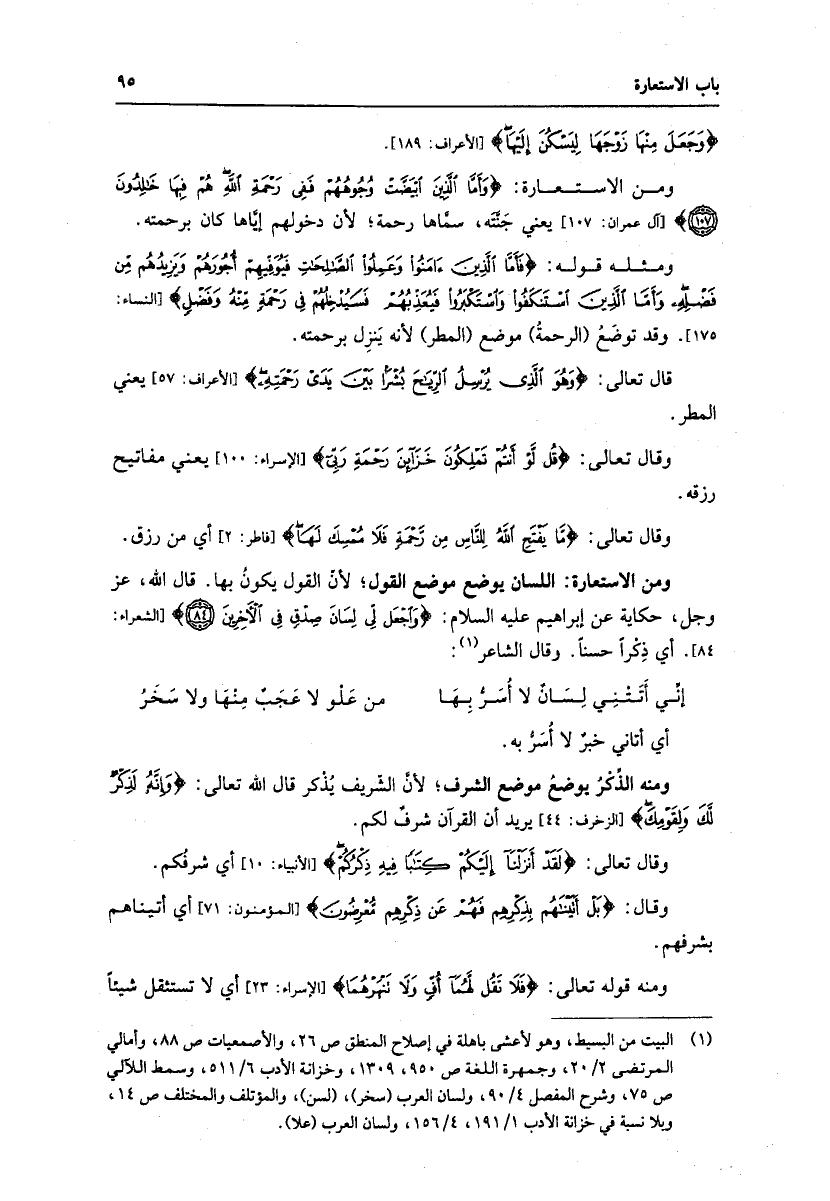 باب الاستعارة ٩٥
﴿وَجَعَلَ مِنْهَا زَوْجَهَا لِيَسْكُنَ إِلَيْهَا﴾ [الأعراف: ١٨٩].
ومن الاستعارة: ﴿وَأَمَّا الَّذِينَ ابْيَضَّتْ وُجُوهُهُمْ فَفِي رَحْمَةِ اللَّهِ هُمْ فِيهَا خَالِدُونَ
(١٠٧)﴾ [آل عمران: ١٠٧] يعني جَنَّته، سمَّاها رحمة؛ لأن دخولهم إيَّاها كان برحمته.
ومثله قوله: ﴿فَأَمَّا الَّذِينَ ءَامَنُوا وَعَمِلُوا الصَّالِحَاتِ فَيُوَفِّيهِمْ أُجُورَهُمْ وَيَزِيدُهُم مِّن
فَضْلِهِ وَأَمَّا الَّذِينَ اسْتَنكَفُوا وَاسْتَكْبَرُوا فَيُعَذِّبُهُمْ فَسَيُدْخِلُهُمْ فِي رَحْمَةٍ مِّنْهُ وَفَضْلٍ﴾ [النساء:
١٧٥]. وقد توضَعُ (الرحمةُ) موضع (المطر) لأنه يَنزِل برحمته.
قال تعالى: ﴿وَهُوَ الَّذِي يُرْسِلُ الرِّيَاحَ بُشْرًا بَيْنَ يَدَيْ رَحْمَتِهِ﴾ [الأعراف: ٥٧] يعني
المطر.
وقال تعالى: ﴿قُل لَّوْ أَنتُمْ تَمْلِكُونَ خَزَائِنَ رَحْمَةِ رَبِّي﴾ [الإسراء: ١٠٠] يعني مفاتيح
رزقه.
وقال تعالى: ﴿مَّا يَفْتَحِ اللَّهُ لِلنَّاسِ مِن رَّحْمَةٍ فَلَا مُمْسِكَ لَهَا﴾ [فاطر: ٢] أي من رزق.
ومن الاستعارة: اللسان يوضع موضع القول؛ لأنّ القول يكونُ بها. قال الله، عز
وجل، حكاية عن إبراهيم عليه السلام: ﴿وَاجْعَل لِّي لِسَانَ صِدْقٍ فِي الْآخِرِينَ (٨٤)﴾ [الشعراء:
٨٤]. أي ذِكْراً حسناً. وقال الشاعر(١):
إنِّي أَتَتْنِي لِسَانٌ لا أُسَرُّ بِهَا من عَلْو لا عَجَبٌ مِنْهَا ولا سَخَرُ
أي أتاني خبرٌ لا أُسَرُّ به.
ومنه الذِّكْرُ يوضعُ موضع الشرف؛ لأنَّ الشَّريف يُذْكر قال الله تعالى: ﴿وَإِنَّهُ لَذِكْرٌ
لَّكَ وَلِقَوْمِكَ﴾ [الزخرف: ٤٤] يريد أن القرآن شرفٌ لكم.
وقال تعالى: ﴿لَقَدْ أَنزَلْنَا إِلَيْكُمْ كِتَابًا فِيهِ ذِكْرُكُمْ﴾ [الأنبياء: ١٠] أي شرفُكم.
وقال: ﴿بَلْ أَتَيْنَاهُم بِذِكْرِهِمْ فَهُمْ عَن ذِكْرِهِم مُّعْرِضُونَ﴾ [المؤمنون: ٧١] أي أتيناهم
بشرفهم.
ومنه قوله تعالى: ﴿فَلَا تَقُل لَّهُمَا أُفٍّ وَلَا تَنْهَرْهُمَا﴾ [الإسراء: ٢٣] أي لا تستثقل شيئاً
(١) البيت من البسيط، وهو لأعشى باهلة في إصلاح المنطق ص ٢٦، والأصمعيات ص ٨٨، وأمالي
المرتضى ٢/ ٢٠، وجمهرة اللغة ص ٩٥٠، ١٣٠٩، وخزانة الأدب ٦/ ٥١١، وسمط اللآلي
ص ٧٥، وشرح المفصل ٤/ ٩٠، ولسان العرب (سخر)، (لسن)، والمؤتلف والمختلف ص ١٤،
وبلا نسبة في خزانة الأدب ١/ ١٩١، ٤/ ١٥٦، ولسان العرب (علا).